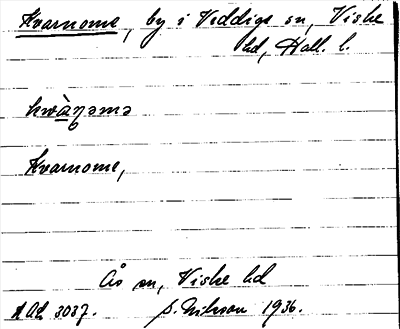 Kvarnome, by i Veddige sn, Viske
hd, Hall. l.
kwàŋəmə
Kvarnome,
Ås sn, Viske hd
Ad. 3037. S. Nilsson 1936.